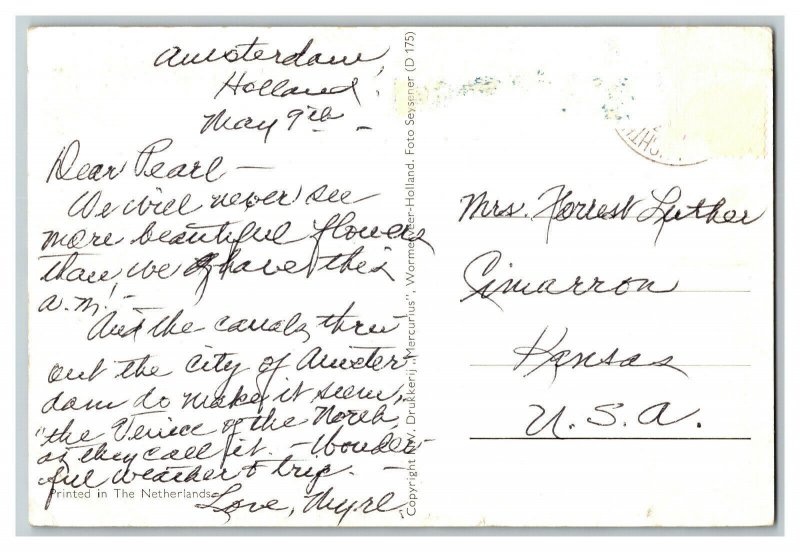 Amsterdam,
Holland
May 9th –
Dear Pearl –
We will never see
more beautiful flowers
than we have this
a.m. –
And the canals, thru
out the city of Amster
dam do make it seem,
"the Venice of the North,
as they call it. – Wonder
ful weather & trip. –
Love, Myrl.
Printed in The Netherlands
Copyright N.V. Drukkerij „Mercurius" Wormerveer-Holland. Foto Seysener (D 175)
Mrs. Forrest Luther
Cimarron
Kansas
U.S.A.